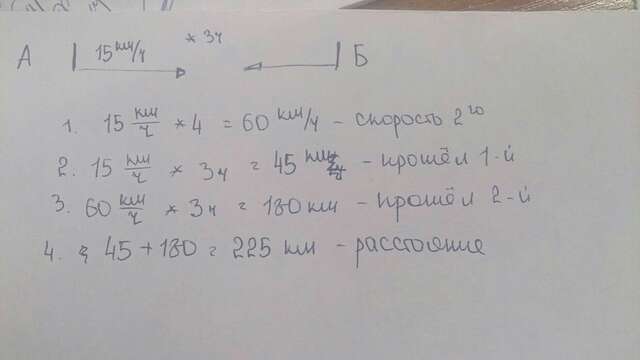 А 15 км/ч * 3ч Б
1. 15 км/ч * 4 = 60 км/ч - скорость 2го
2. 15 км/ч * 3ч = 45 км - прошёл 1-й
3. 60 км/ч * 3ч = 180 км - прошёл 2-й
4. 45 + 180 = 225 км - расстояние